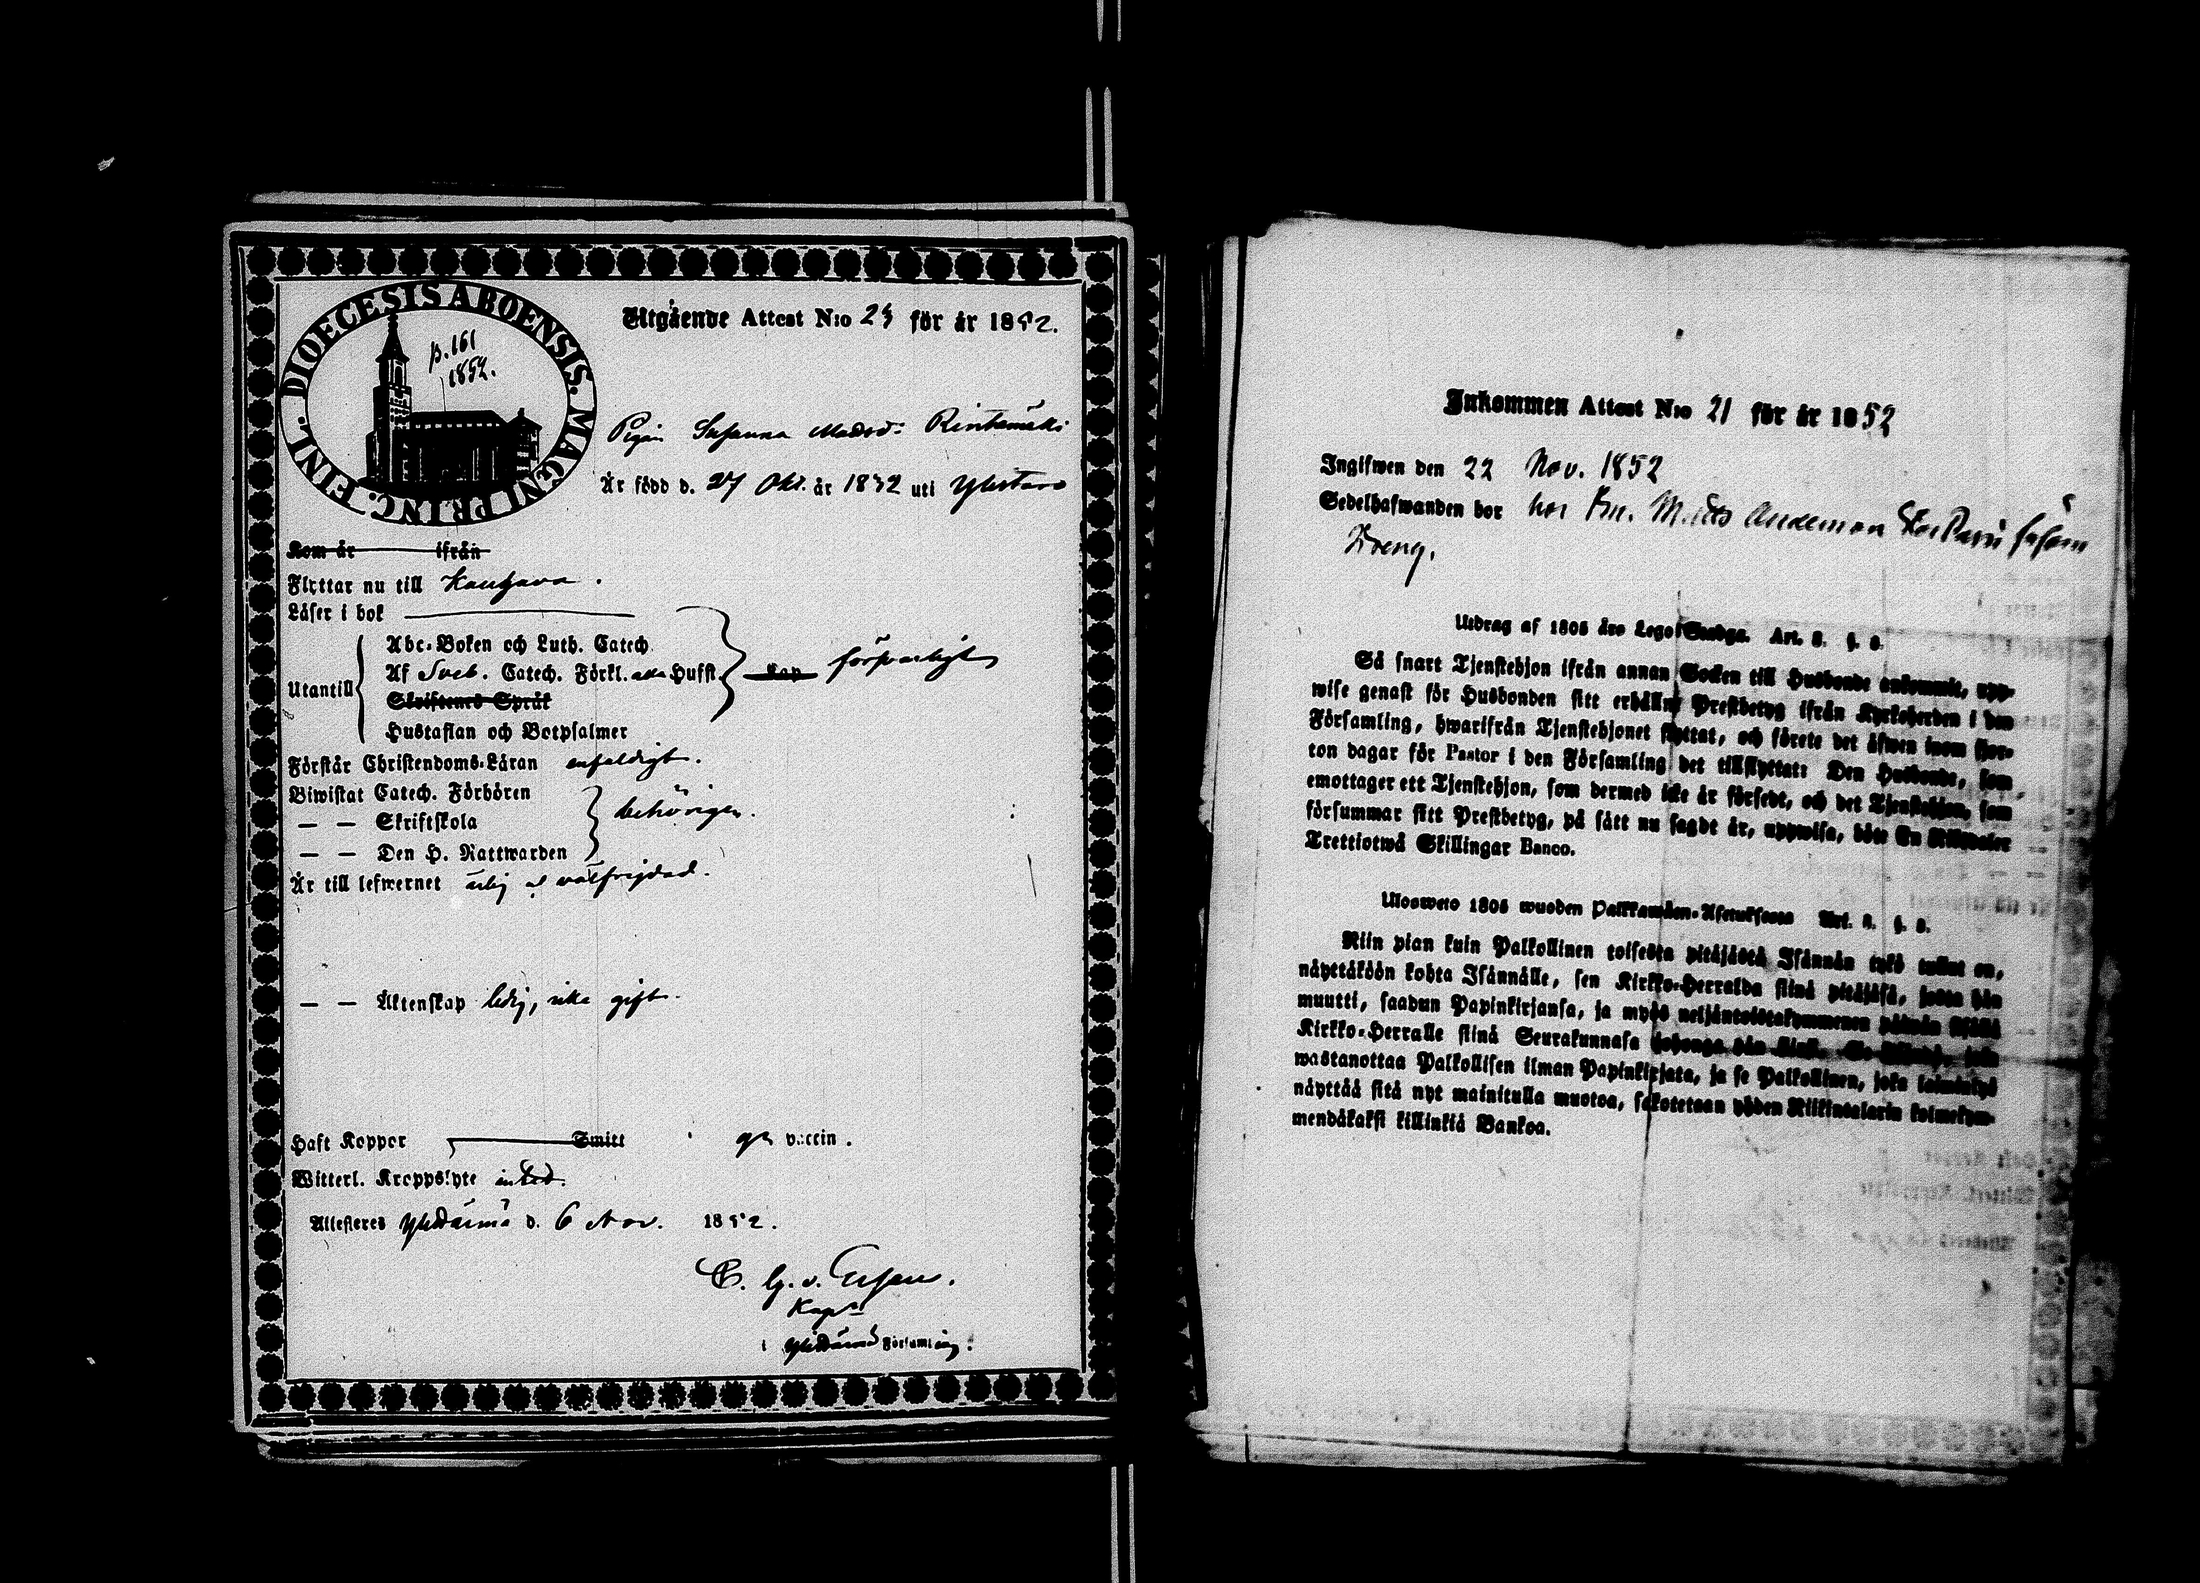 DIOECESIS ABOENSIS. MAGNI PRINC. FINL.
p. 161
1852.
Utgående Attest N:o för år 1852.
Pigan Susanna Madsd: Rintamäki
Är född d. 27 Okt. år 1832 uti Ylistaro
Kom år ifrån
Flyttar nu till Kauhava.
Läser i bok
Utantill
Abc-Boken och Luth. Catech.
Af Sveb. Catech. Förkl. Husft
Skriftenes Språk
Hustaflan och Botpsalmer
Kap försvarligt
Förstår Christendoms-Läran enfaldigt.
Biwistat Catech. Förhören
— — Skriftskola
— — Den H. Nattwarden
behörigen.
Är till lefwernet ärlig o välfrejdad.
— — Äktenskap ledig, icke gift.
Haft Koppor Smitt gn vaccin.
Witterl. Kroppslyte intet.
Attesteras Ylihärmä d. 6 Nov. 1852.
Kapn
i Ylihärmä Församling.
Inkommen Attest N:o 21 för år 1852
Ingifwen den 22 Nov. 1852
Sedelhafwanden bor hos Bn. Matts Anderson såsom
Dreng.
Utdrag af 1805 års Lego-Stadga. Art. 8. §. 8.
Så snart Tjenstehjon ifrån annan Socken till Husbonde ankommit, upp-
wise genast för Husbonden sitt erhållne Prestbetyg ifrån Kyrkoherden i den
Församling, hwarifrån Tjenstehjonet flyttat, och förete det äfwen inom fjor-
ton dagar för Pastor i den Församling det tillflyttat: Den Husbonde, som
emottager ett Tjenstehjon, som dermed icke är försedt, och det Tjenstehjon, som
försummar sitt Prestbetyg, på sätt nu sagdt är, uppwisa, böte En Riksdaler
Trettiotwå Skillingar Banco.
Ulosweto 1805 wuoden Palkkawäen-Asetuksesta Art. 8. §. 8.
Niin pian kuin Palkollinen toisesta pitäjästä Isännän tykö tullut on,
näyttäköön kohta Isännälle, sen Kirkko-Herralda siinä pitäjäsä, josta hän
muutti, saadun Papinkirjansa, ja myös neljäntoistakymmenen päiwän sisällä
Kirkko-Herralle siinä Seurakunnasa
wastanottaa Palkollisen ilman Papinkirjata, ja se Palkollinen, joka laiminlyö
näyttää sitä nyt mainitulla muotoa, sakotetaan yhden Riikintalarin kolmekym-
mendäkaksi killinkiä Bankoa.